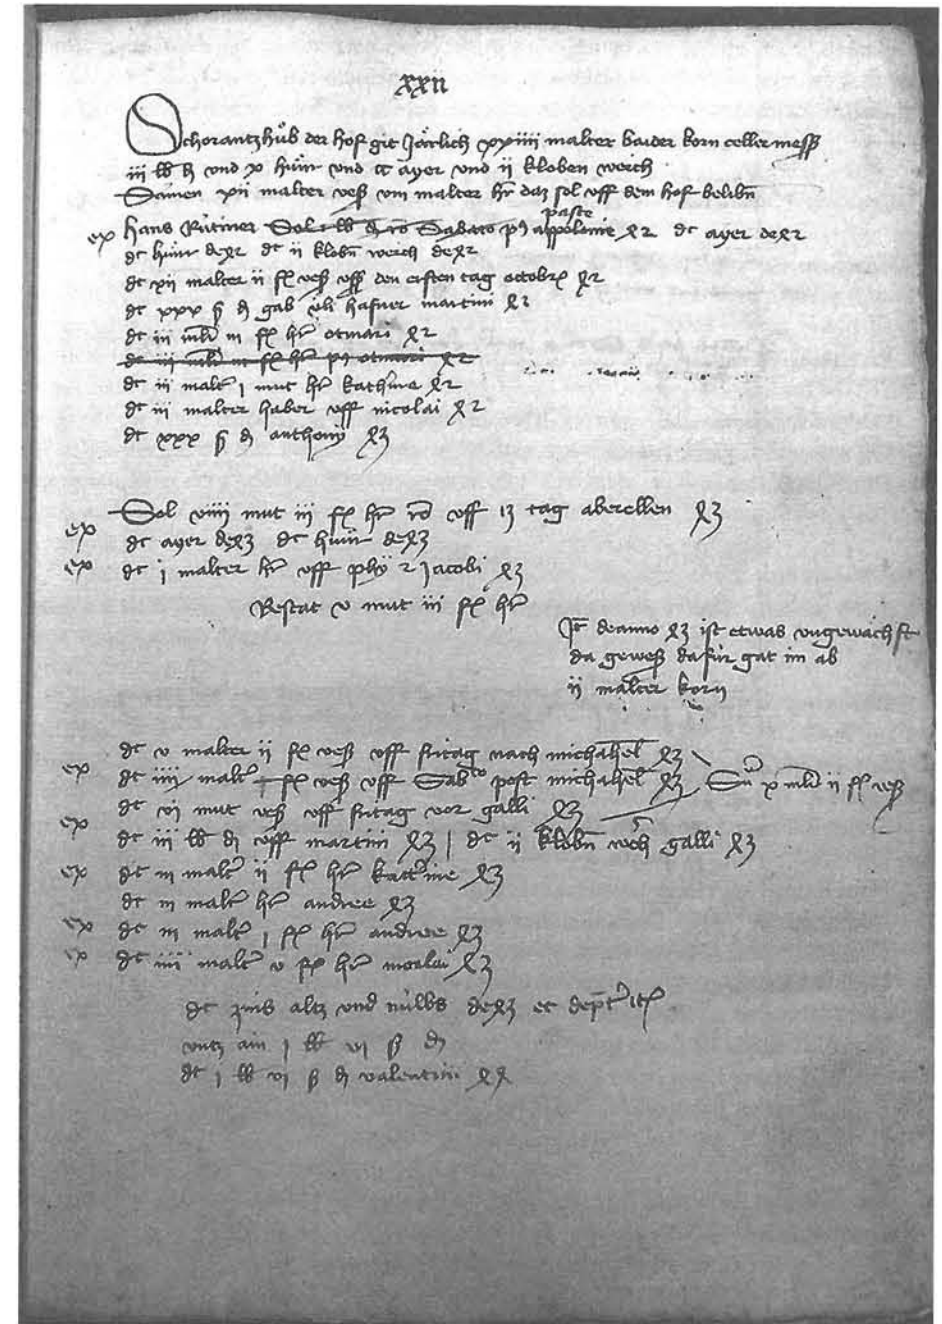 xxii
Schorantzhůb der hof git Jårlich xxiiii malter baider korn cellermess
iii lb d und x hůnr und cc ayer und ii kloben werch
Såmen xii malter vess viii malter hr daz sol uff dem hof belibn
ex hans Růtiner Sol lb d ro Sabato p9 appolonie 82 dt ayer de82
pasce
dt hůnr de82 dt ii klobn werch de82
dt xii malter ii fl vess uff den ersten tag octobr 82
dt xxx ß d gab ůli hafner martini 82
dt iii mlr iii fl hr otmari 82
dt iii mlr iii fl hr p9 otmari 82
dt iii maltr j mut hr kathrine 82
dt iii malter haber uff nicolai 82
dt xxx ß d anthonÿ 83
ex Sol viiii mut iii fl hr ro uff 13 tag aberellen 83
dt ayer de83 dt hůnr de83
ex dt j malter hr uff phÿ 2 Jacobi 83
Restat v mut iii fl hr
It deanno 83 ist etwas ungewåchst
da gewess dafůr gat im ab
ii malter korn
dt v malter ii fl vess uff fritag nach michahel 83
ex dt iiii maltr fl vess uff Sabto post michahel 83 Sů x mlr ii fl vess
dt vi mut vess uff fritag vor galli 83
ex dt iii lb d uff martini 83 | dt ii klobn wrch galli 83
ex dt iii maltr ii fl hr kattrine 83
dt iii maltr hr andree 83
ex dt iii maltr j fl hr andree 83
ex dt iiii maltr v fl hr nicolai 83
dt zins altz und nůws de83 et
untz ain j lb vi ß d
dt j lb vi ß d valentini 84